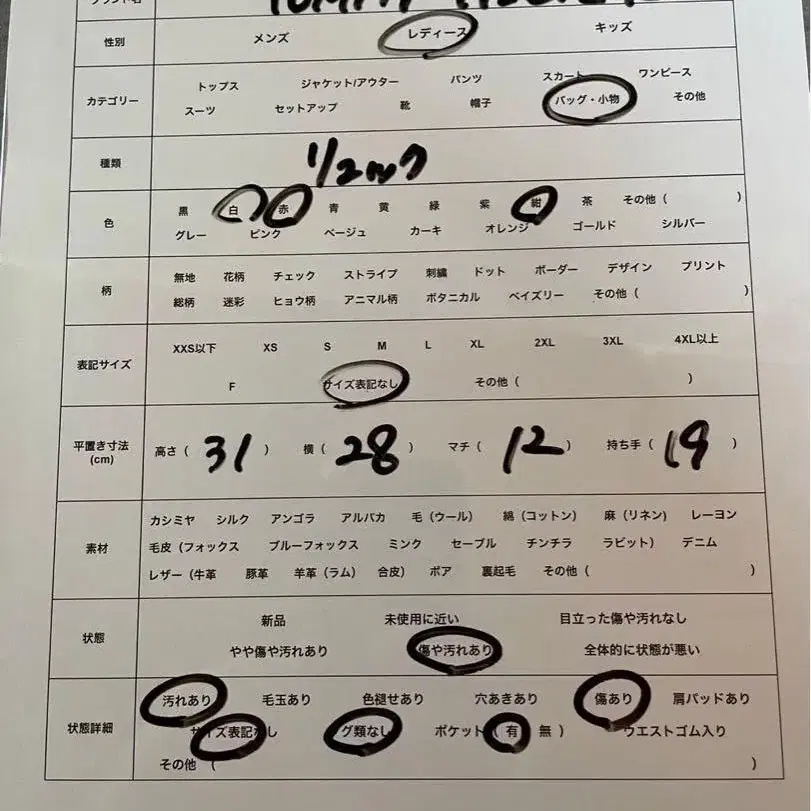 ブランド名 TOMMY HILFIGER
性別 メンズ レディース キッズ
カテゴリー トップス ジャケット/アウター パンツ スカート ワンピース
スーツ セットアップ 靴 帽子 バッグ・小物 その他
種類 リュック
色 黒 白 赤 青 黄 緑 紫 紺 茶 その他( )
グレー ピンク ベージュ カーキ オレンジ ゴールド シルバー
柄 無地 花柄 チェック ストライプ 刺繍 ドット ボーダー デザイン プリント
総柄 迷彩 ヒョウ柄 アニマル柄 ボタニカル ペイズリー その他( )
表記サイズ XXS以下 XS S M L XL 2XL 3XL 4XL以上
F サイズ表記なし その他( )
平置き寸法 (cm) 高さ( 31 ) 横( 28 ) マチ( 12 ) 持ち手( 19 )
素材 カシミヤ シルク アンゴラ アルパカ 毛(ウール) 綿(コットン) 麻(リネン) レーヨン
毛皮(フォックス ブルーフォックス ミンク セーブル チンチラ ラビット) デニム
レザー(牛革 豚革 羊革(ラム) 合皮) ボア 裏起毛 その他( )
状態 新品 未使用に近い 目立った傷や汚れなし
やや傷や汚れあり 傷や汚れあり 全体的に状態が悪い
状態詳細 汚れあり 毛玉あり 色褪せあり 穴あきあり 傷あり 肩パッドあり
サイズ表記なし グ類なし ポケット( 有 無 ) ウエストゴム入り
その他( )